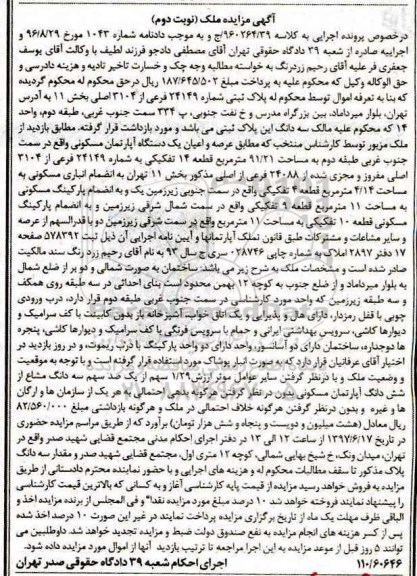 آگهی مزایده ملک (نوبت دوم)
درخصوص پرونده اجرایی به کلاسه ۹۶۰۲۶۴/۳۹ج و به موجب دادنامه شماره ۱۰۴۳ مورخ ۹۶/۸/۲۹ و
اجراییه صادره از شعبه ۳۹ دادگاه حقوقی تهران آقای مصطفی دادجو فرزند لطیف با وکالت آقای یوسف
جعفری فر علیه آقای رحیم زردرنگ به خواسته مطالبه وجه چک و خسارت تاخیر تادیه و هزینه دادرسی و
حق الوکاله وکیل که محکوم علیه به پرداخت مبلغ ۱۸۷/۶۴۵/۵۰۲ ریال درحق محکوم له محکوم گردیده
که بنا به تعرفه اموال توسط محکوم له پلاک ثبتی شماره ۲۴۱۴۹ فرعی از ۳۱۰۴ اصلی بخش ۱۱ به آدرس
تهران، بلوار میرداماد، بین بزرگراه مدرس و خ نفت جنوبی، پ ۳۳۴ سمت جنوب غربی، طبقه دوم، واحد
۱۴ که محکوم علیه مالک سه دانگ این پلاک ثبتی می باشد و مورد بازداشت قرار گرفته. مطابق بازدید از
ملک مزبور توسط کارشناس منتخب که مطابق عرصه و اعیان یک دستگاه آپارتمان مسکونی واقع در سمت
جنوب غربی طبقه دوم به مساحت ۹۱/۲۱ مترمربع قطعه ۱۴ تفکیکی به شماره ۲۴۱۴۹ فرعی از ۳۱۰۴
اصلی مفروز و مجزی شده از ۲۴۰۸۸ فرعی از اصلی مذکور بخش ۱۱ تهران به انضمام انباری مسکونی به
مساحت ۴/۱۴ مترمربع قطعه ۴ تفکیکی واقع در سمت جنوبی زیرزمین یک و به انضمام پارکینگ مسکونی
به مساحت ۱۱ مترمربع قطعه ۹ تفکیکی واقع در سمت شمال شرقی زیرزمین و به انضمام پارکینگ
مسکونی قطعه ۱۰ تفکیکی به مساحت ۱۱ مترمربع واقع در سمت شرقی زیرزمین دو با قدرالسهم از عرصه
و سایر مشاعات و مشترکات طبق قانون تملک آپارتمانها و آیین نامه اجرایی آن ذیل ثبت ۵۷۸۳۹۲ صفحه
۱۷ دفتر ۲۸۹۷ املاک به شماره چاپی ۰۲۸۷۴۶ سری ج سال ۹۳ به نام آقای رحیم زرد رنگ سند مالکیت
صادر شده است و مشخصات ملک به شرح زیر می باشد: ساختمان به صورت شمالی و دو بر از ضلع شمال
به بلوار میرداماد و از ضلع جنوب به کوچه ۱۲ بهمن محدود است بنای احداثی در سه طبقه روی همکف
و سه طبقه زیرزمین که واحد مورد کارشناسی در سمت جنوب غربی طبقه دوم قرار دارد، درب ورودی
چوبی با قفل رمزدار، دارای هال و پذیرایی و یک اتاق خواب، آشپزخانه باز بدون کابینت با کف سرامیک و
دیوارها کاشی، سرویس بهداشتی ایرانی و حمام با سرویس فرنگی با کف سرامیک و دیوارها کاشی، پنجره
ها دوجداره، ساختمان دارای دو آسانسور، واحد دارای دو واحد پارکینگ با درب ریموت، و در روز بازدید در
اختیار آقای عرفانیان قرار دارد که به صورت انبار پوشاک مورد استفاده قرار گرفته است و با توجه به موقعیت
و وضعیت ملک و با درنظر گرفتن سایر عوامل موثر ارزش ۱/۲۹ سهم از یک صد سهم سه دانگ مشاع از
شش دانگ آپارتمان مسکونی بدون درنظر گرفتن هرگونه بدهی احتمالی به هر یک از سازمان ها و ارگان
ها و غیره و بدون درنظر گرفتن هرگونه خلاف احتمالی در ملک و هرگونه بازداشتی مبلغ ۸۲/۵۶۰/۰۰۰
ریال معادل (هشت میلیون و دویست و پنجاه و شش هزار تومان) برآورد که از طریق مراسم مزایده حضوری
در تاریخ ۱۳۹۷/۶/۱۷ از ساعت ۱۲ الی ۱۳ در دفتر اجرای احکام مدنی مجتمع قضایی شهید صدر واقع در
تهران، میدان ونک، خ شیخ بهایی شمالی، کوچه ۱۲ متری اول، مجتمع قضایی شهید صدر و مقدار سه دانگ
پلاک مذکور تا سقف مطالبات محکوم له و هزینه های اجرایی و با حضور نماینده محترم دادستانی از طریق
مزایده به فروش خواهد رسید مزایده از قیمت پایه کارشناسی آغاز و به کسانی که بالاترین قیمت کارشناسی
را پیشنهاد نمایند فروخته خواهد شد ۱۰ درصد مبلغ مورد مزایده نقدا" و فی المجلس از برنده مزایده اخذ و
الباقی ظرف مهلت یک ماه از تاریخ برگزاری مزایده پرداخت نمایند در غیر این صورت ۱۰ درصد اخذ شده
پس از کسر هزینه های انجام مزایده به نفع صندوق دولت ضبط و مزایده تجدید خواهد شد. داوطلبین می
توانند ۵ روز قبل از موعد مزایده به این اجرا مراجعه تا ترتیب بازدید آنها از اموال مورد مزایده داده شود.
۱۱۰/۶۰۶۴۶ اجرای احکام شعبه ۳۹ دادگاه حقوقی صدر تهران